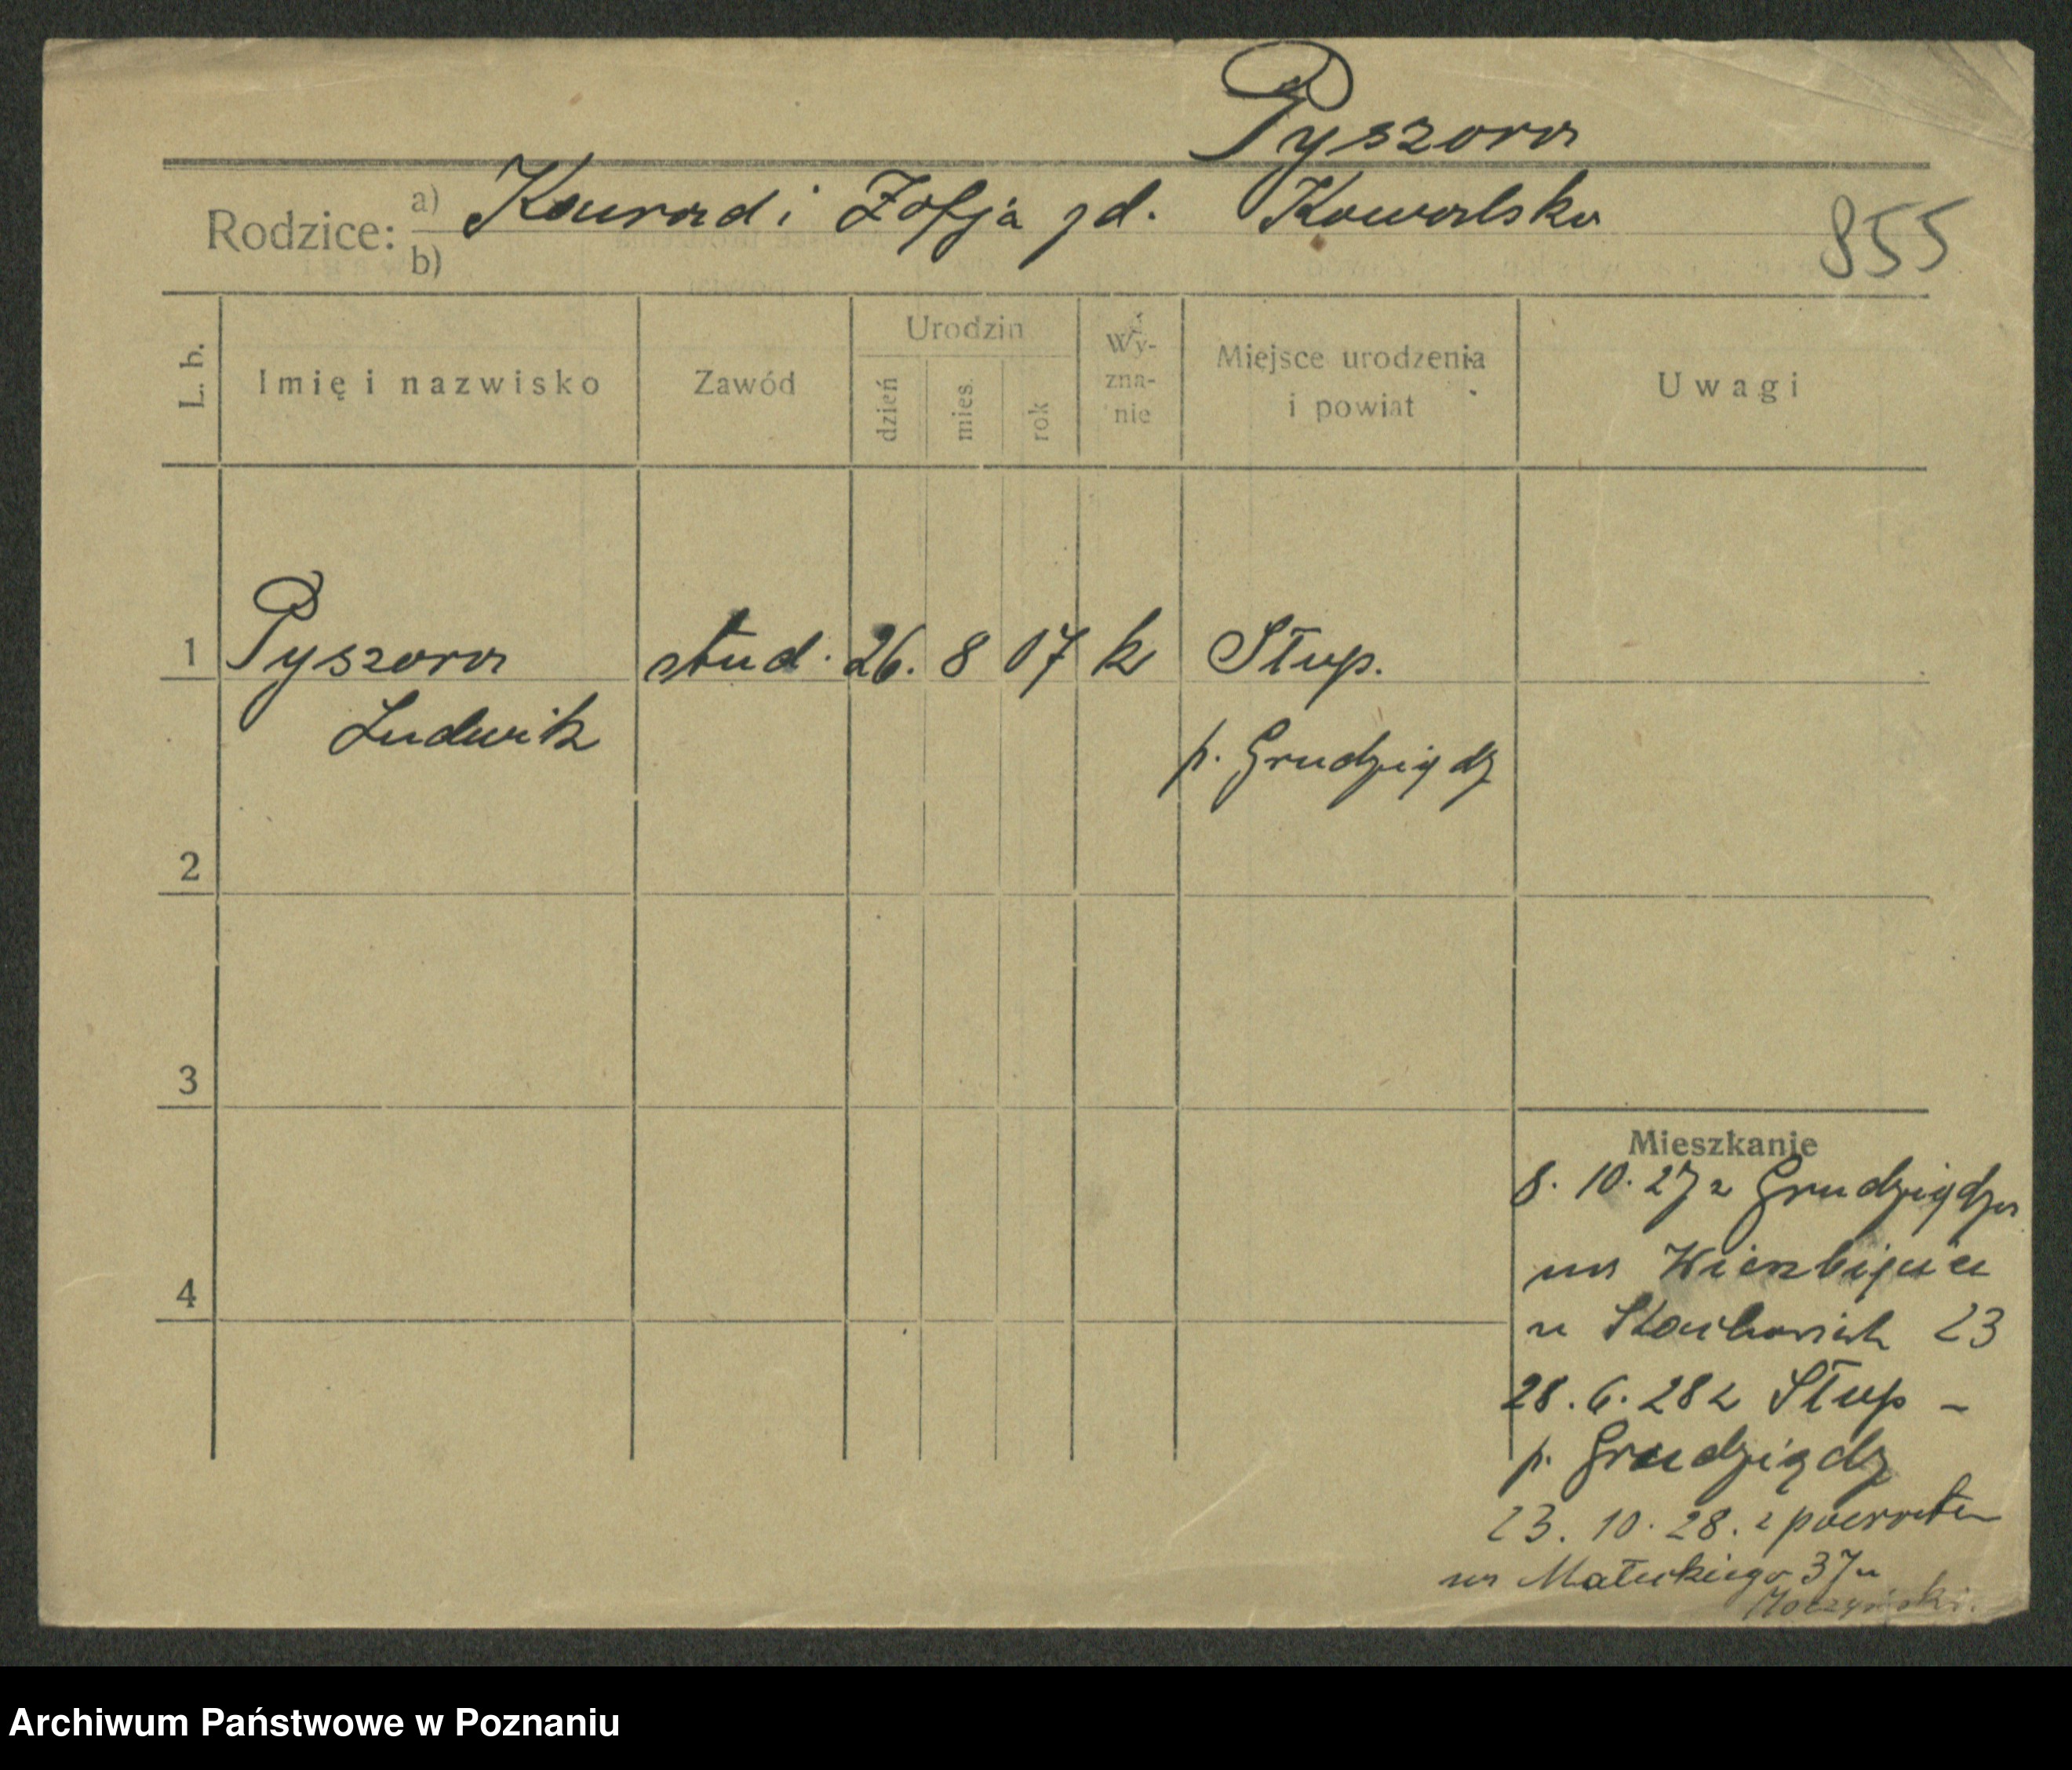 Pyszora
Rodzice: a) Konrad i Zofja zd. Kowalska
b)
855
L. b.
Imię i nazwisko
Zawód
Urodzin
dzień
mies.
rok
Wy-
zna-
nie
Miejsce urodzenia
i powiat
Uwagi
1 Pyszora stud. 26. 8 07 k Słup.
Ludwik p. Grudziądz
2
3
4
Mieszkanie
8. 10. 27 z Grudziądza
na Wierzbięcice
u 23
28. 6. 28 z Słup –
p. Grudziądz
23. 10. 28. z powrotem
na Małeckiego 37 u
Archiwum Państwowe w Poznaniu